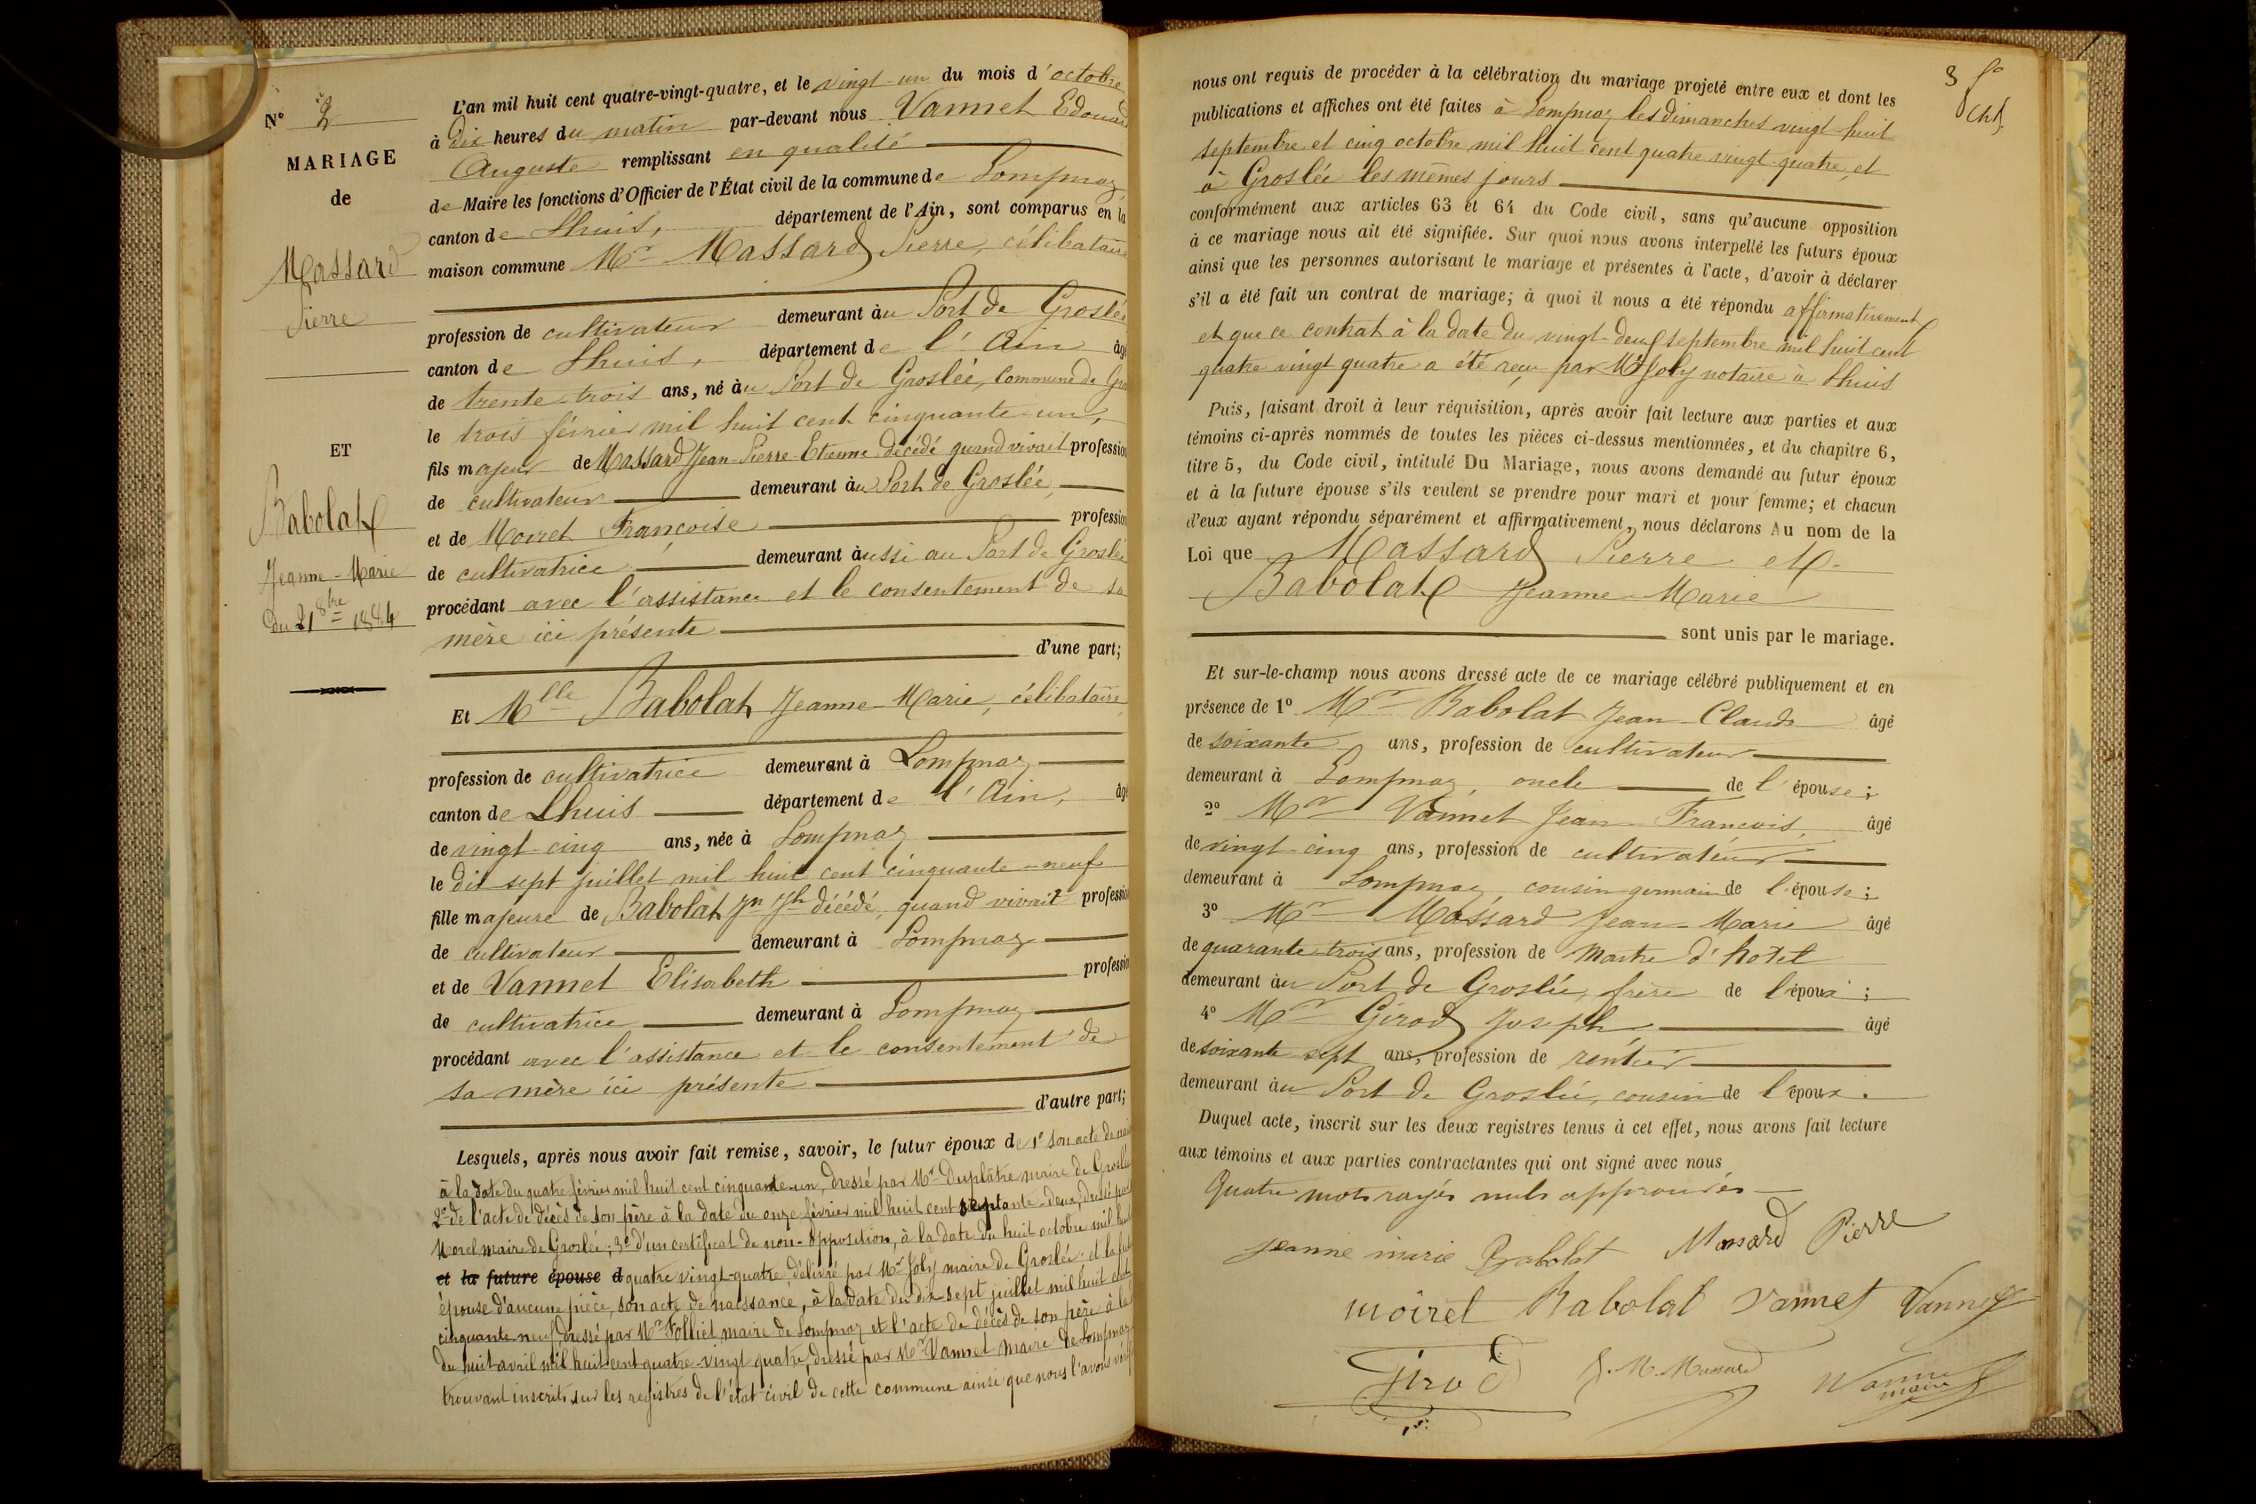 N° 2
MARIAGE
de
Massard
Pierre
ET
Babolat
Jeanne-Marie
du 21 8bre 1884
L'an mil huit cent quatre-vingt-quatre, et le vingt-un du mois d'octobre
à dix heures du matin par-devant nous Vannet Edouard
Auguste remplissant en qualité
de Maire les fonctions d'Officier de l'État civil de la commune de Lompnaz
canton de Lhuis, département de l'Ain, sont comparus en la
maison commune Mr Massard Pierre, célibataire
profession de cultivateur demeurant au Port de Groslée
canton de Lhuis, département de l'Ain âgé
de trente-trois ans, né au Port de Groslée, commune de Gro
le trois février mil huit cent cinquante-un,
fils majeur de Massard Jean-Pierre-Etienne décédé quand vivait profession
de cultivateur demeurant au Port de Groslée,
et de Moiret Françoise profession
de cultivatrice demeurant aussi au Port de Groslée
procédant avec l'assistance et le consentement de sa
mère ici présente
d'une part;
Et Mlle Babolat Jeanne-Marie, célibataire
profession de cultivatrice demeurant à Lompnaz
canton de Lhuis département de l'Ain, âgé
de vingt-cinq ans, née à Lompnaz
le dix sept juillet mil huit cent cinquante-neuf
fille majeure de Babolat Jn Jh décédé, quand vivait profession
de cultivateur demeurant à Lompnaz
et de Vannet Elisabeth profession
de cultivatrice demeurant à Lompnaz
procédant avec l'assistance et le consentement de
sa mère ici présente
d'autre part;
Lesquels, après nous avoir fait remise, savoir, le futur époux de 1° son acte de nais
à la date du quatre février mil huit cent cinquante-un, dressé par Mr Duplâtre maire de Groslée
2° de l'acte de décès de son père à la date du onze février mil huit cent septante-deux, dressé par
Morel maire de Groslée; 3° d'un certificat de non-opposition, à la date du huit octobre mil huit
et la future épouse d quatre vingt-quatre, délivré par Mr Joly maire de Groslée; et la fut
épouse d'aucune pièce, son acte de naissance, à la date du dix sept juillet mil huit cent
cinquante neuf, dressé par Mr Folliet maire de Lompnaz et l'acte de décès de son père à la
du huit avril mil huit cent quatre-vingt quatre, dressé par Mr Vannet maire de Lompnaz
trouvant inscrits sur les registres de l'état civil de cette commune ainsi que nous l'avons vérif
3 fo
nous ont requis de procéder à la célébration du mariage projeté entre eux et dont les
publications et affiches ont été faites à Lompnaz les dimanches vingt huit
septembre et cinq octobre mil huit cent quatre vingt-quatre, et
à Groslée les mêmes jours
conformément aux articles 63 et 64 du Code civil, sans qu'aucune opposition
à ce mariage nous ait été signifiée. Sur quoi nous avons interpellé les futurs époux
ainsi que les personnes autorisant le mariage et présentes à l'acte, d'avoir à déclarer
s'il a été fait un contrat de mariage; à quoi il nous a été répondu affirmativement
et que ce contrat à la date du vingt-deux septembre mil huit cent
quatre vingt quatre a été reçu par Me Joly notaire à Lhuis
Puis, faisant droit à leur réquisition, après avoir fait lecture aux parties et aux
témoins ci-après nommés de toutes les pièces ci-dessus mentionnées, et du chapitre 6,
titre 5, du Code civil, intitulé Du Mariage, nous avons demandé au futur époux
et à la future épouse s'ils veulent se prendre pour mari et pour femme; et chacun
d'eux ayant répondu séparément et affirmativement, nous déclarons Au nom de la
Loi que Massard Pierre et
Babolat Jeanne-Marie
sont unis par le mariage.
Et sur-le-champ nous avons dressé acte de ce mariage célébré publiquement et en
présence de 1° Mr Babolat Jean-Claude âgé
de soixante ans, profession de cultivateur
demeurant à Lompnaz, oncle de l'épouse;
2° Mr Vannet Jean-François, âgé
de vingt-cinq ans, profession de cultivateur
demeurant à Lompnaz, cousin germain de l'épouse;
3° Mr Massard Jean-Marie âgé
de quarante-trois ans, profession de Maitre d'hotel
demeurant au Port de Groslée, frère de l'époux;
4° Mr Girod Joseph âgé
de soixante sept ans, profession de rentier
demeurant au Port de Groslée, cousin de l'époux.
Duquel acte, inscrit sur les deux registres tenus à cet effet, nous avons fait lecture
aux témoins et aux parties contractantes qui ont signé avec nous
Quatre mots rayés nuls approuvés
jeanne marie Babolat Massard Pierre
moiret Babolat Vannet Vannet
Girod J. M. Massard Vannet
maire